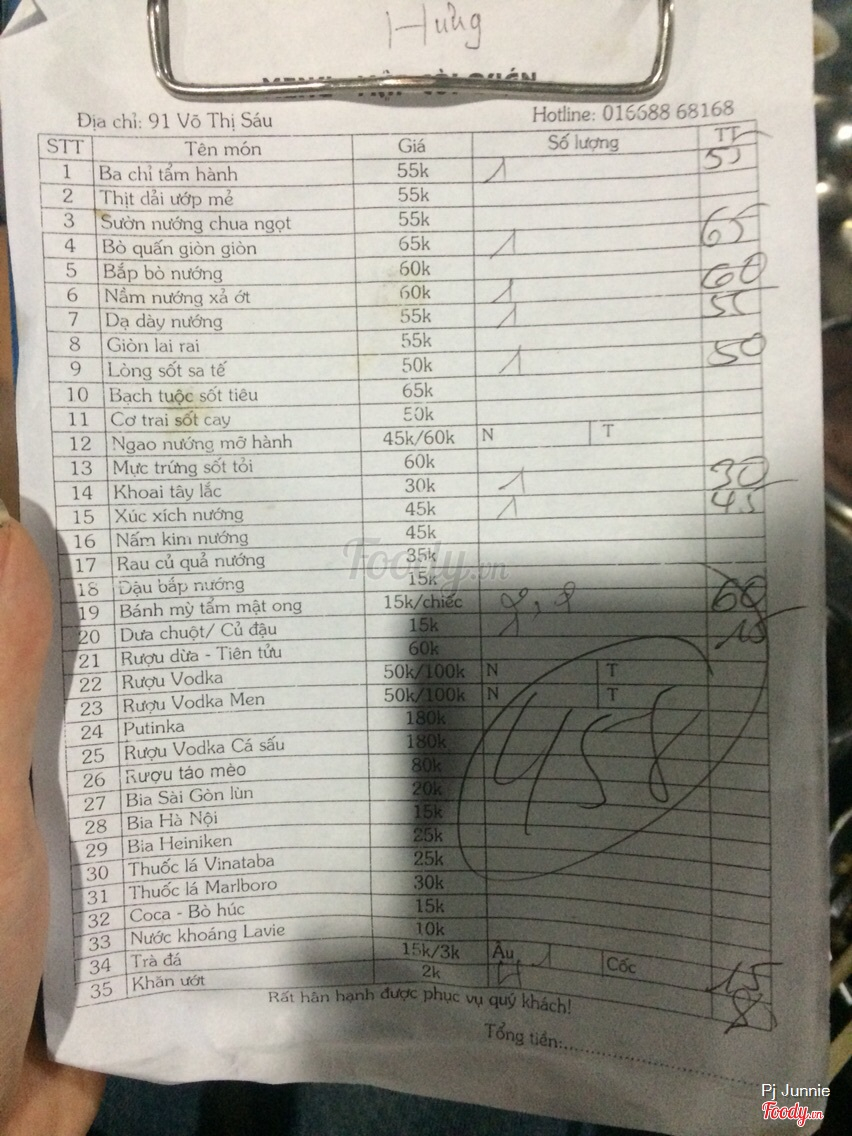 Hưng
Địa chỉ: 91 Võ Thị Sáu Hotline: 016688 68168
STT Tên món Giá Số lượng TT
1 Ba chỉ tẩm hành 55k 1 55
2 Thịt dải ướp mẻ 55k
3 Sườn nướng chua ngọt 55k
4 Bò quấn giòn giòn 65k 1 65
5 Bắp bò nướng 60k
6 Nầm nướng xả ớt 60k 1 60
7 Dạ dày nướng 55k 1 55
8 Giòn lai rai 55k
9 Lòng sốt sa tế 50k 1 50
10 Bạch tuộc sốt tiêu 65k
11 Cơ trai sốt cay 50k
12 Ngao nướng mỡ hành 45k/60k N T
13 Mực trứng sốt tỏi 60k
14 Khoai tây lắc 30k 1 30
15 Xúc xích nướng 45k 1 45
16 Nấm kim nướng 45k
17 Rau củ quả nướng 35k
18 Đậu bắp nướng 15k
19 Bánh mỳ tẩm mật ong 15k/chiếc 2, 2 60
20 Dưa chuột/ Củ đậu 15k 15
21 Rượu dừa - Tiên tửu 60k
22 Rượu Vodka 50k/100k N T
23 Rượu Vodka Men 50k/100k N T
24 Putinka 180k
25 Rượu Vodka Cá sấu 180k
26 Rượu táo mèo 80k
27 Bia Sài Gòn lùn 20k
28 Bia Hà Nội 15k
29 Bia Heiniken 25k
30 Thuốc lá Vinataba 25k
31 Thuốc lá Marlboro 30k
32 Coca - Bò húc 15k
33 Nước khoáng Lavie 10k
34 Trà đá 15k/3k Âu 1 Cốc 15
35 Khăn ướt 2k 4 8
458
Rất hân hạnh được phục vụ quý khách!
Tổng tiền:................
Foody.vn
Pj Junnie
Foody.vn